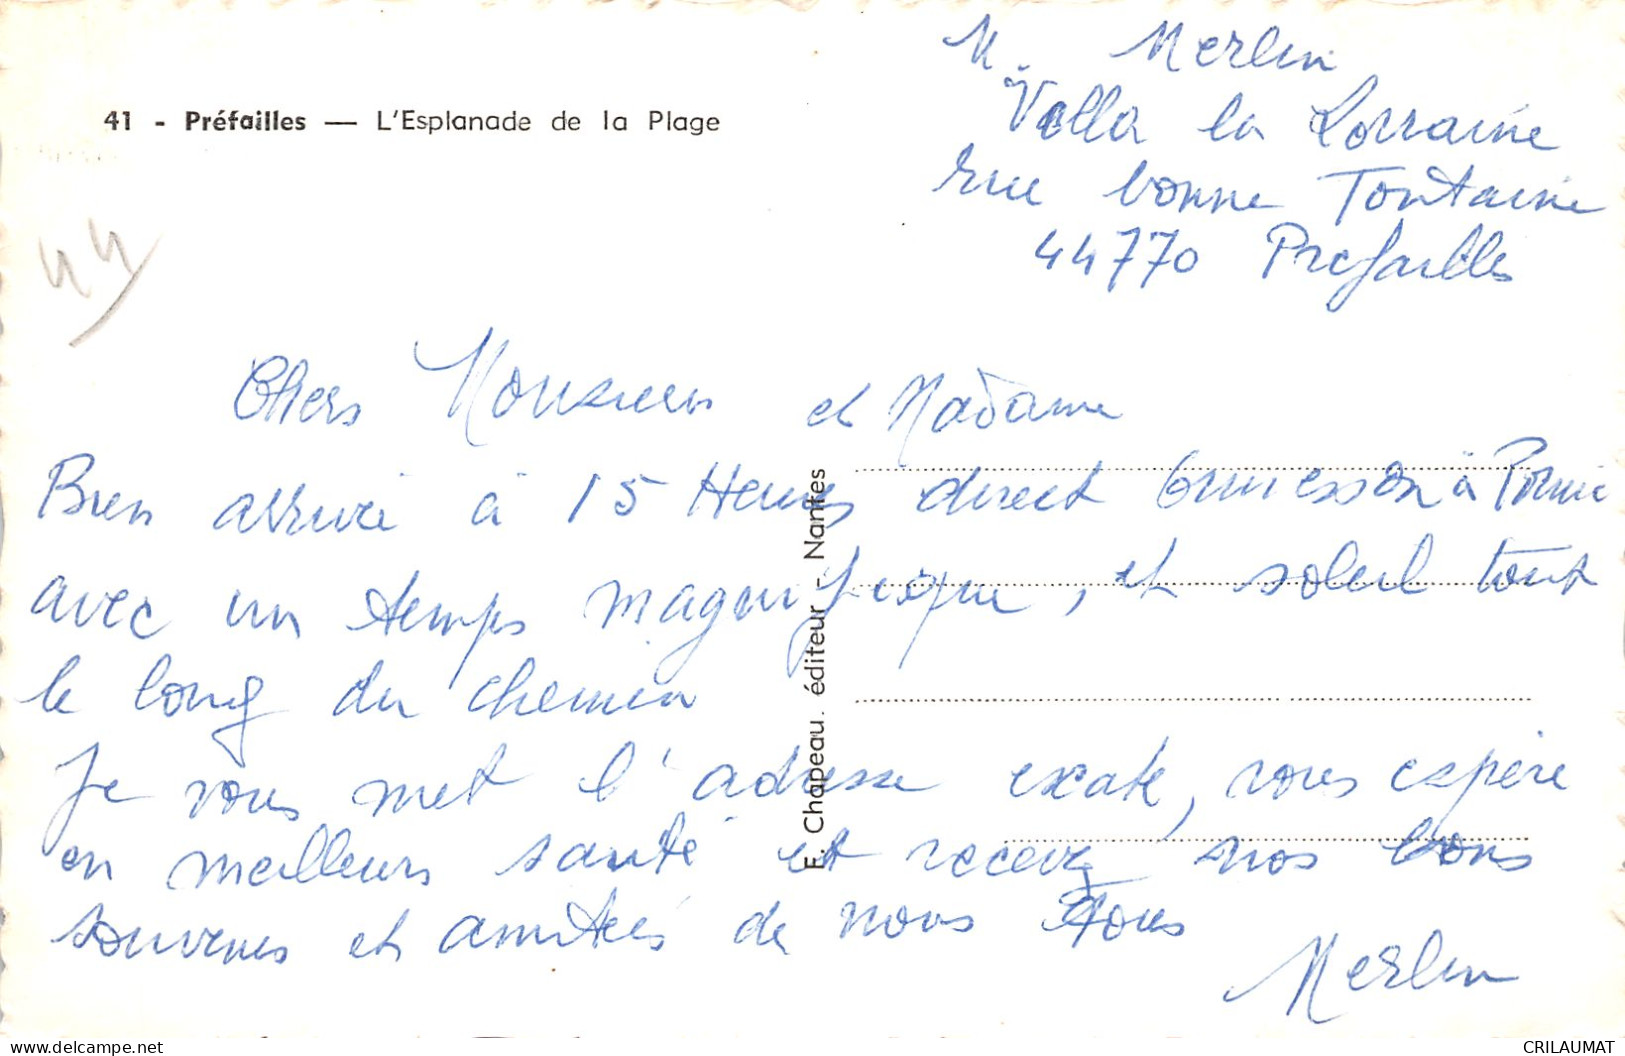 M. Merlin
Villa la Lorraine
rue bonne Fontaine
44770 Prefailles
41 - Préfailles — L'Esplanade de la Plage
44
Chers Monsieur et Madame
Bien arrivé à 15 Heures direct Ormesson à Pornic
avec un temps magnifique, et soleil tout
le long du chemin
Je vous met l'adresse exate, vous espère
en meilleurs santé et recevez nos bons
souvenirs et amitiés de nous tous
Merlin
E. Chapeau. éditeur - Nantes
CRILAUMAT